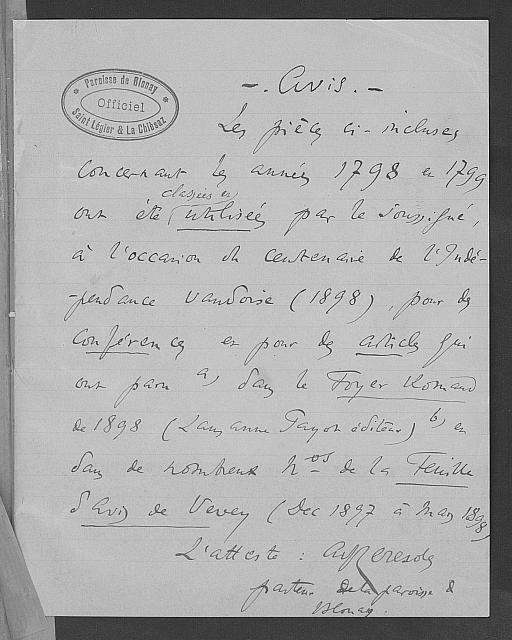 Paroisse de Blonay
Officiel
Saint Légier & La Chiésaz
- . Avis . -
Les pièces ci-incluses
concernant les années 1798 et 1799
classées et
ont été utilisées par le soussigné,
à l'occasion du centenaire de l'Indé-
-pendance vaudoise (1898), pour des
conférences et pour des articles qui
ont paru a) dans le Foyer Romand
de 1898 (Lausanne Payot éditeur) b) et
dans de nombreux nos de la Feuille
d'Avis de Vevey (Dec 1897 à Mars 1898)
L'atteste : A. Ceresole
pasteur de la paroisse de
Blonay.